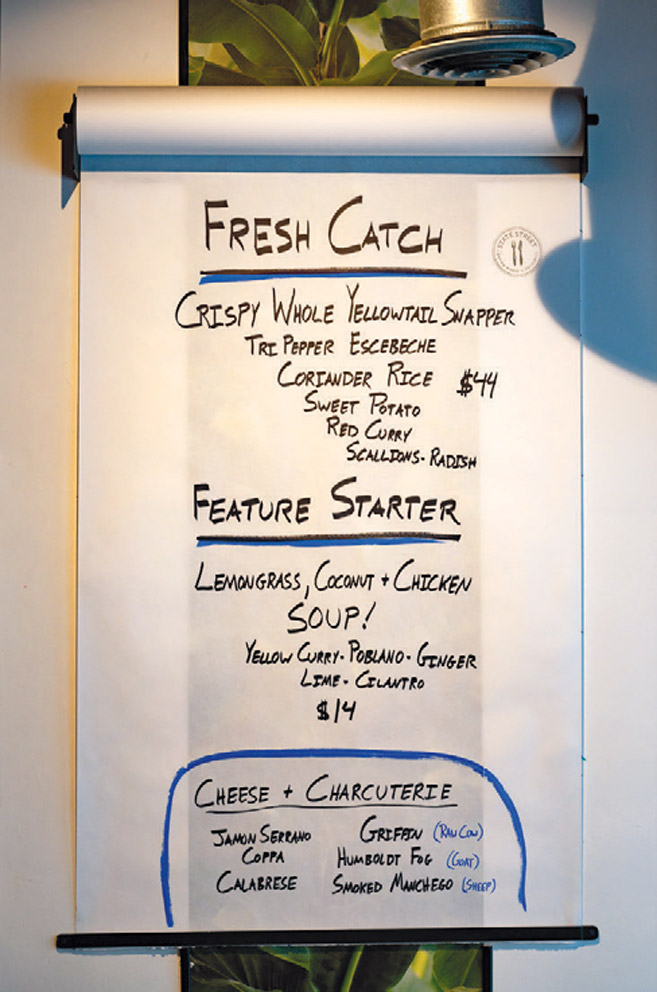 FRESH CATCH
STATE STREET
CRISPY WHOLE YELLOWTAIL SNAPPER
TRI PEPPER ESCEBECHE
CORIANDER RICE $44
SWEET POTATO
RED CURRY
SCALLIONS - RADISH
FEATURE STARTER
LEMONGRASS, COCONUT + CHICKEN
SOUP!
YELLOW CURRY - POBLANO - GINGER
LIME - CILANTRO
$14
CHEESE + CHARCUTERIE
JAMON SERRANO GRIFFIN (RAW COW)
COPPA HUMBOLDT FOG (GOAT)
CALABRESE SMOKED MANCHEGO (SHEEP)